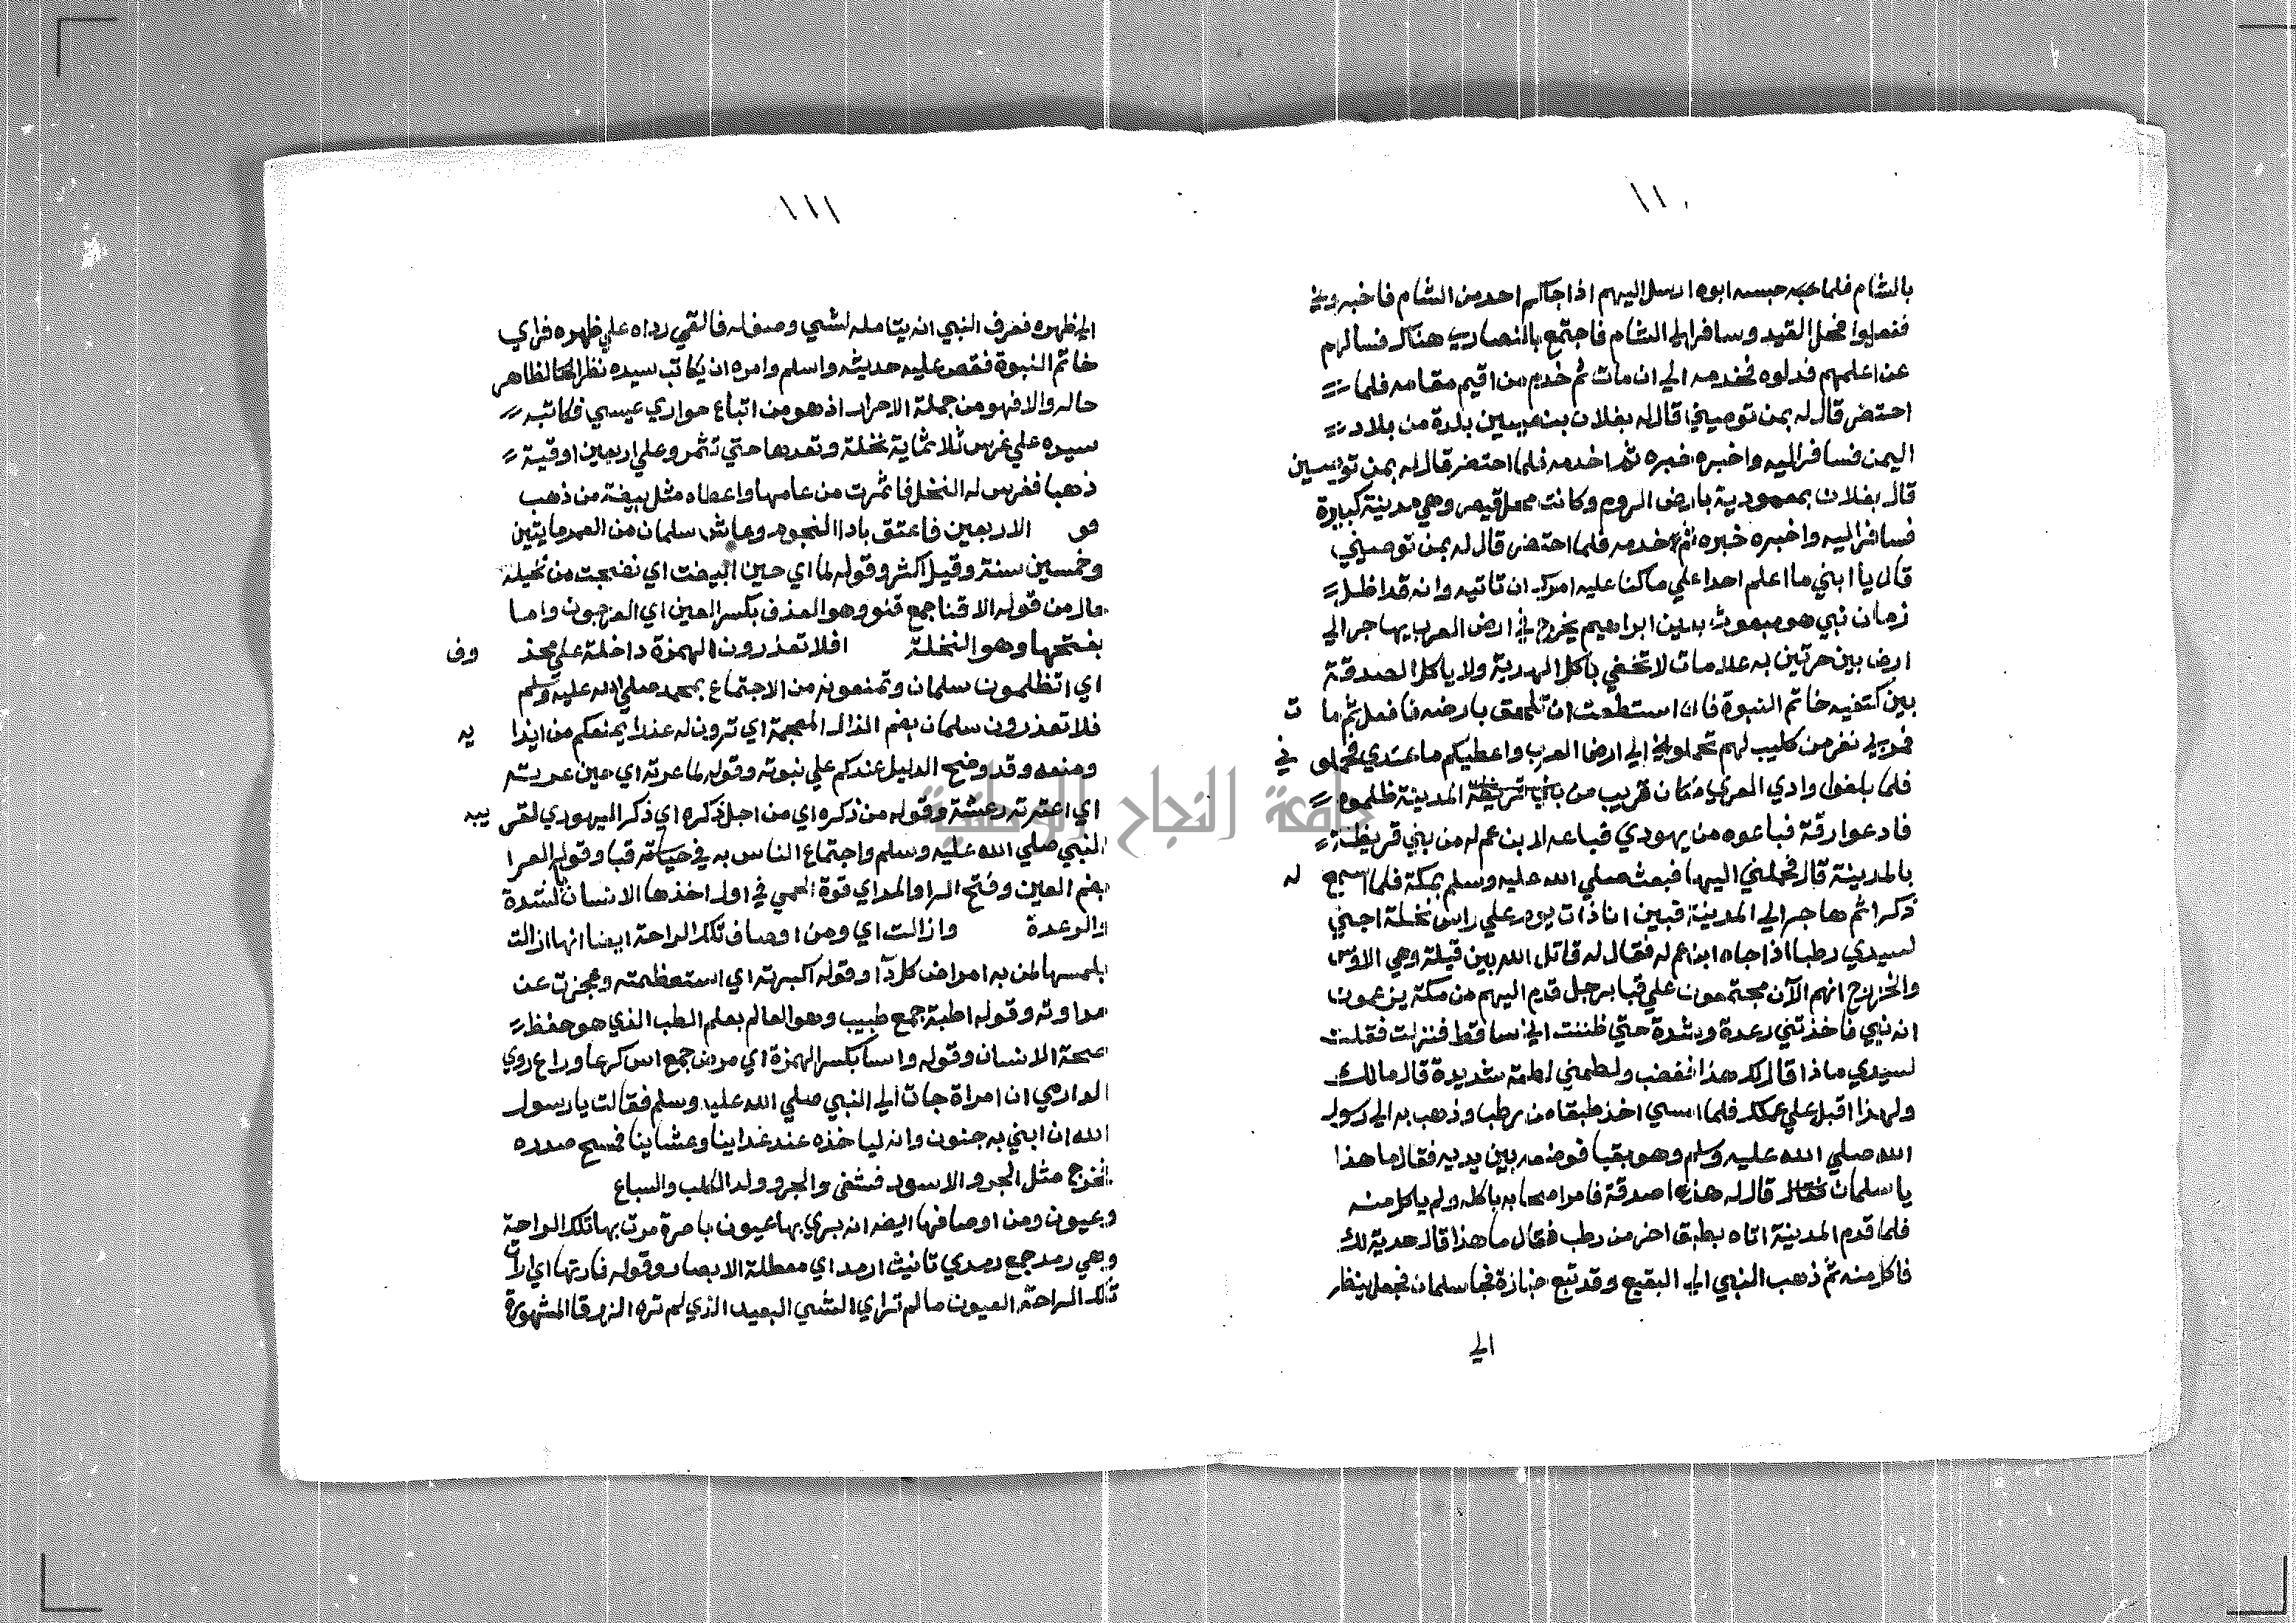 ١١٠
بالشام فلما حبه حبسه ابوه ارسل اليهم اذا جاكم احد من الشام فاخبروني
ففعلوا فحل القيد وسافر الي الشام فاجتمع بالنصاري هناك فسالهم
عن اعلمهم فدلوه فخدمه الي ان مات ثم خدم من اقيم مقامه فلما
احتضر قال له بمن توصيني قال له بفلان بنصيبين بلدة من بلاد
اليمن فسافر اليه واخبره خبره ثم اخدمه فلما احتضر قال له بمن توصيني
قال بفلان بعمودية بارض الروم وكانت محل قيصر وهي مدينة كبيرة
فسافر اليه واخبره خبره ثم خدمه فلما احتضر قال له بمن توصيني
قال يا ابني ما اعلم احدا علي ما كنا عليه امرك ان تاتيه وانه قد اظل
زمان نبي هو مبعوث بدين ابراهيم يخرج في ارض العرب يهاجر الي
ارض بين حرتين به علامات لا تخفي ياكل الهدية ولا ياكل الصدقة
بين كتفيه خاتم النبوة فان استطعت ان تلحق بارضه فافعل ثم مات
فمر به نفر من كليب لهم تحملوني الي ارض العرب واعطيكم ما عندي فحملوني
فلما بلغوا وادي القري مكان قريب من المدينة ظلموه
فادعوا رقة فباعوه من يهودي فباعه الابن عم له من بني قريظة
بالمدينة قال فحملني اليها فبعث صلي الله عليه وسلم بمكة فلما اسمع له
ذكرا ثم هاجر الي المدينة فبين انا ذات يوم علي راس نخلة اجني
لسيدي رطبا اذ جاه ابن عم له فقال له قاتل الله بين قيلة وهي الاوس
والخزرج انهم الآن مجتمعون علي قبا برجل قدم اليهم من مكة يزعمون
انه نبي فاخذتني رعدة وشدة حتي ظننت اني ساقط فنزلت فقلت
لسيدي ماذا قال لك هذا فغضب ولطمني لطمة شديدة قال مالك
ولهذا اقبل علي عملك فلما امسي اخذ طبقا من رطب وذهب به الي رسول
الله صلي الله عليه وسلم وهو بقبا فوضعه بين يديه فقال ما هذا
يا سلمان فقال قال له هذه صدقة فامر اصحابه باكله ولم ياكل منه
فلما قدم المدينة اتاه بطبق اخر من رطب فقال ما هذا قال هدية لك
فاكل منه ثم ذهب النبي الي البقيع وقد تبع جنازة فجا سلمان فجعل ينظر
الي
١١١
الي ظهره فعرف النبي انه يتامله لشي وصف له فالقي رداه علي ظهره فراي
خاتم النبوة فقص عليه حديثه واسلم وامره ان يكاتب سيده نظرا لحالظاهر
حاله والا فهو من جملة الاحرار اذ هو من اتباع حواري عيسي فكاتبه
سيده علي غرس ثلاثماية نخلة وتعدها حتي تثمر وعلي اربعين اوقية
ذهبا فغرس له النخل فاثمرت من عامها واعطاه مثل بيضة من ذهب
الاربعين فاعتق بادا النجوم وعاش سلمان من العمر مايتين
وخمسين سنة وقيل اكثر وقوله لما اي حين اينعت اي نضجت من نخيله
مال من قوله الاقنا جمع قنو وهو العذق بكسر العين اي العرجون واما
بفتحها وهو النخلة افلا تعذرون الهمزة داخلة علي محذوف
اي اتظلمون سلمان وتمنعونه من الاجتماع بمحمد صلي الله عليه وسلم
فلا تعذرون سلمان بضم الذال المعجمة اي ترون له عذرا يمنعكم من ايذايه
ومنعه وقد وضح الدليل عندكم علي نبوته وقوله لما عرته اي حين عرته
اي اعترته رعشة وقوله من ذكره اي من اجل ذكره اي ذكر اليهودي لقريبه
النبي صلي الله عليه وسلم واجتماع الناس به في قبا وقوله العرا
بضم العين وفتح الرا والمد اي قوة الحمي في اول اخذها الانسان لشدة
والرعدة وازالت اي ومن اوصاف تلك الراحة ايضا انها ازالت
بلمسها لمن به امراض كل دآ وقوله اكبرته اي استعظمته وعجزت عن
مداوته وقوله اطبة جمع طبيب وهو العالم بعلم الطب الذي هو حفظ
صحة الانسان وقوله واسا بكسر الهمزة اي مرض جمع اس كرعا وراع روي
الدارمي ان امراة جات الي النبي صلي الله عليه وسلم فقالت يا رسول
الله ان ابني به جنون وانه لياخذه عند غداينا وعشاينا فمسح صدره
فخرج مثل الجرو الاسود فشفي والجرو ولد الكلب والسباع
وعيون ومن اوصافها ايضه انه بري بها عيون باصرة مرت بها تلك الراحة
وهي رمد جمع رمدي تانيث ارمد اي معطلة الابصار وقوله فارتها اي ارات
تلك الراحة العيون ما لم تراي الشي البعيد الذي لم تره الزرقا المشهورة
جامعة النجاح الوطنية